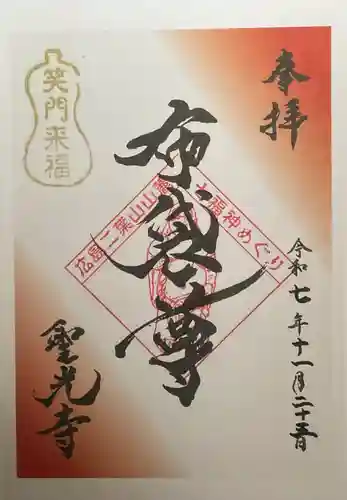 奉拝
笑門来福
布袋尊
広島二葉山山麓七福神めぐり
令和七年十一月二十五日
聖光寺